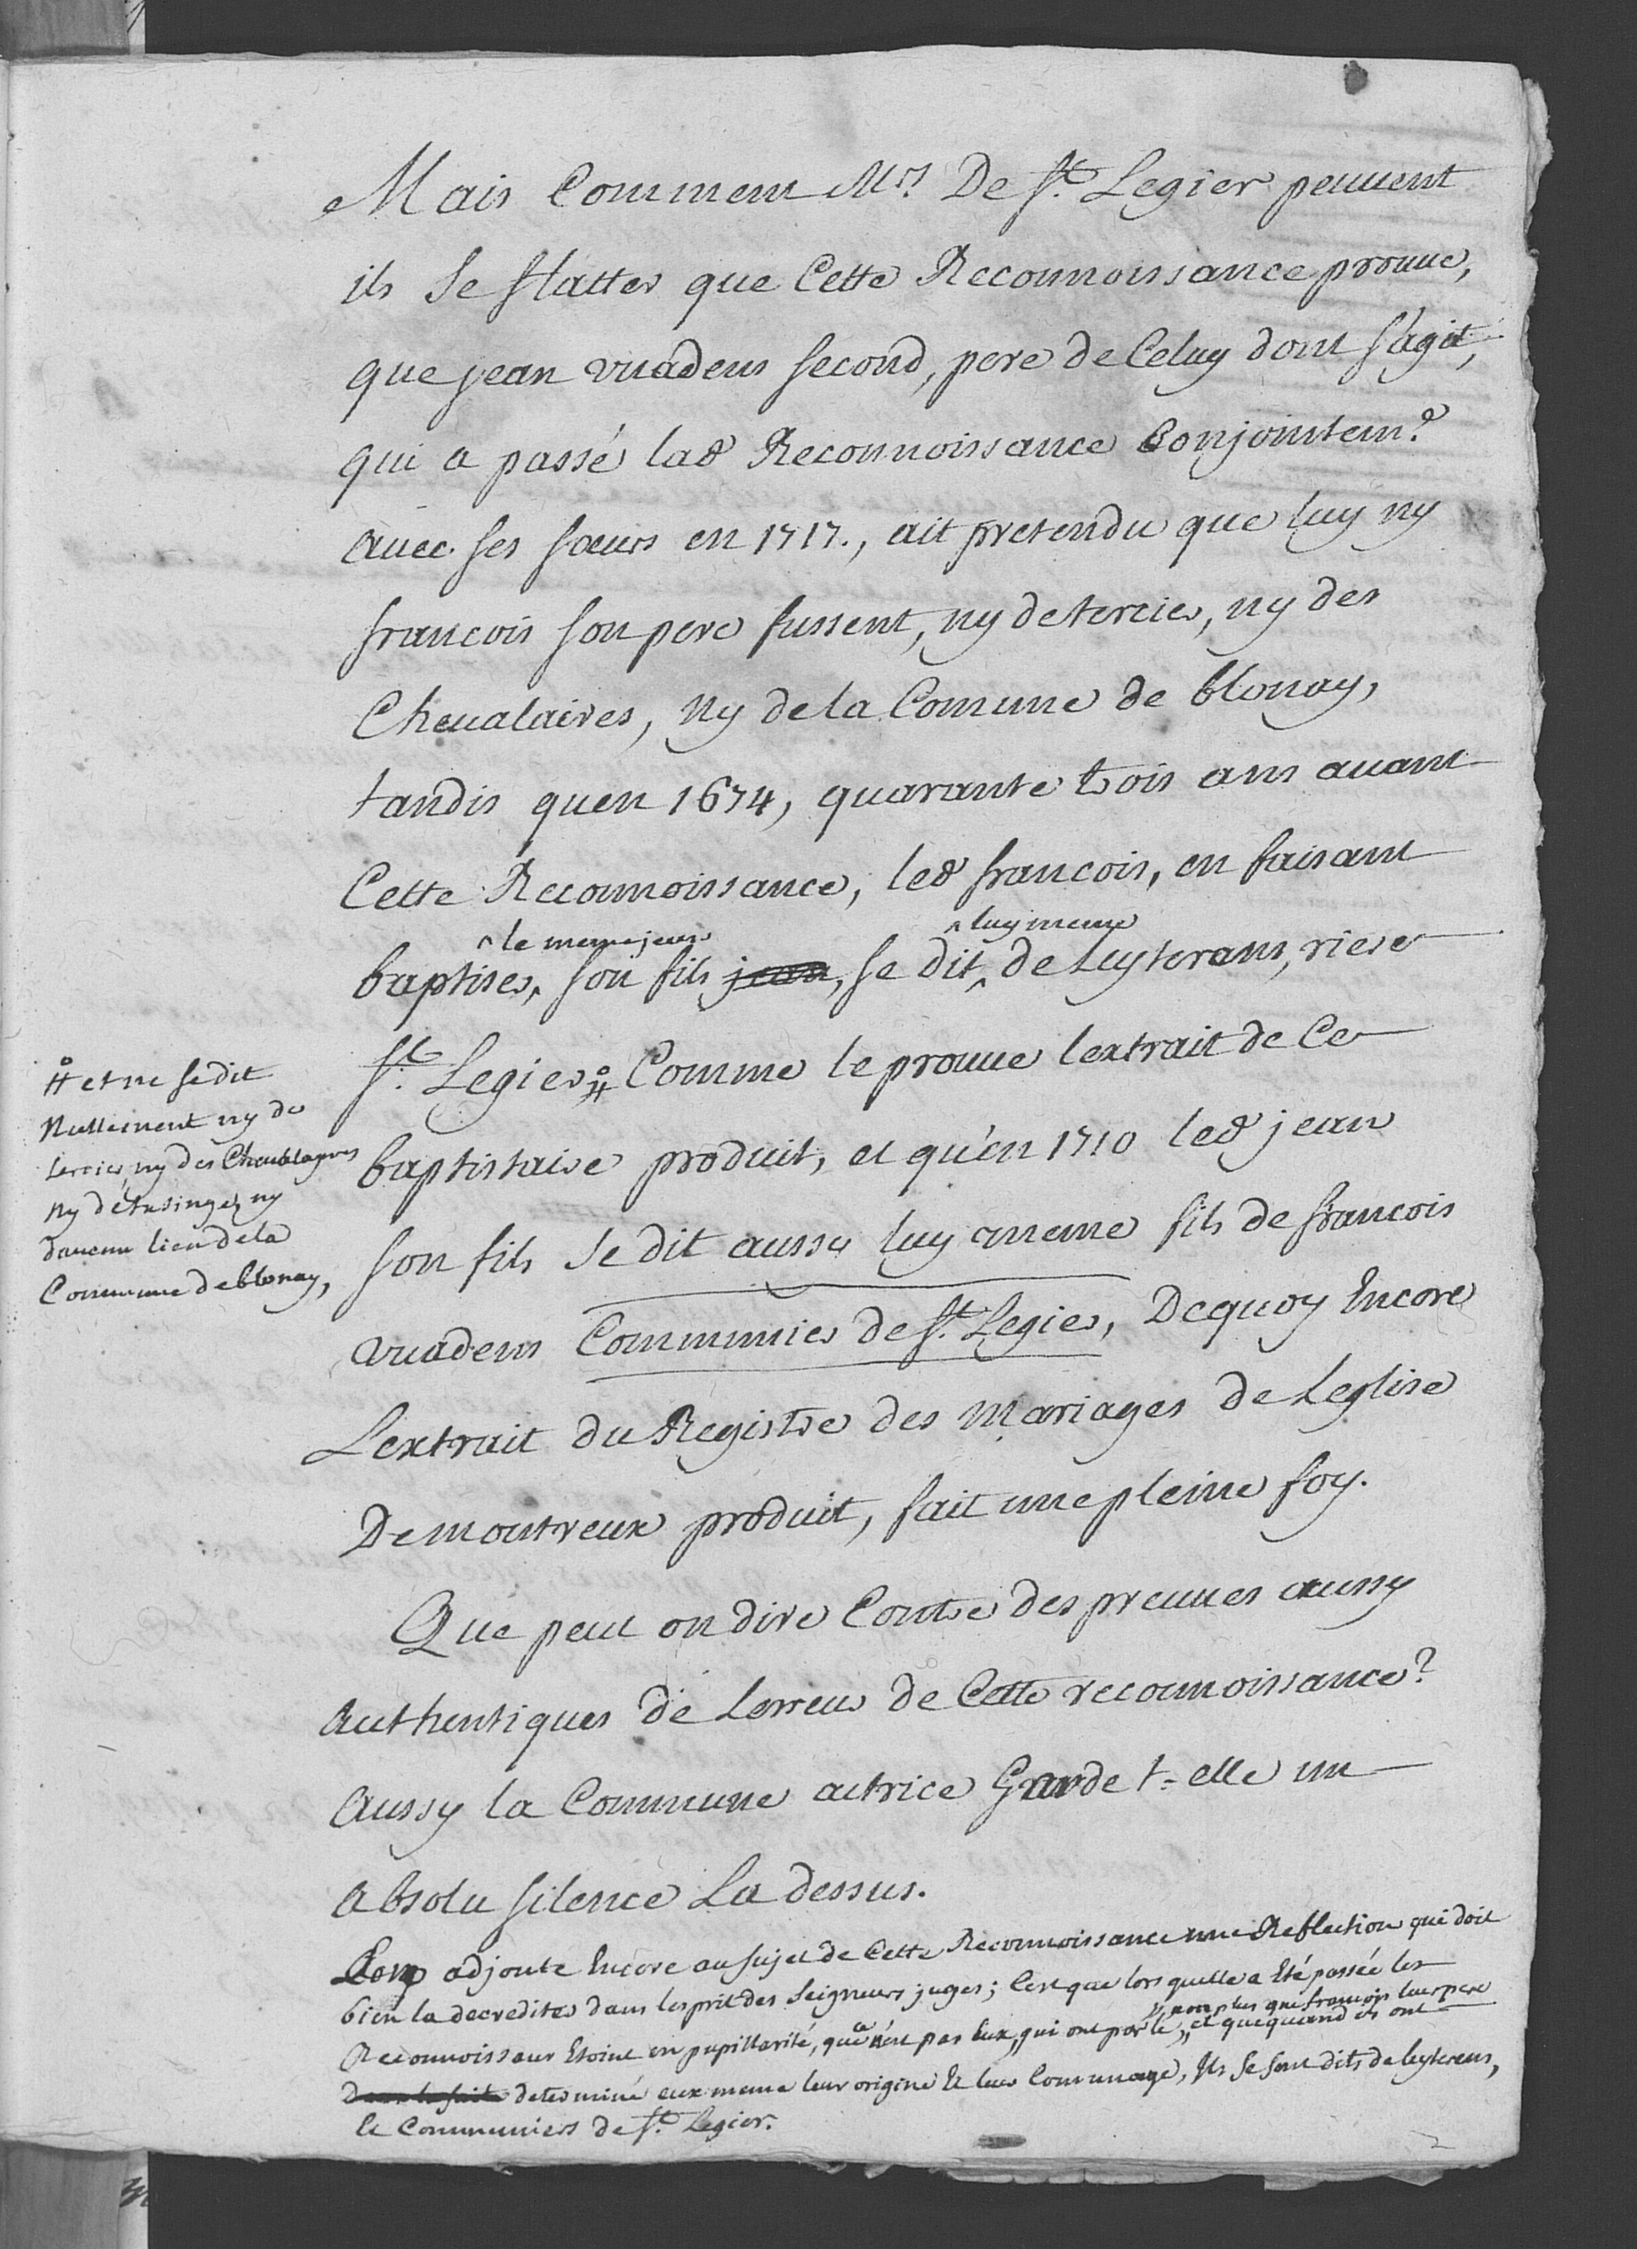 Mais Comment Mrs. De St. Legier peuuent
ils Se flatter que Cette Reconnoissance prouue,
que jean vuadens second, pere de Celuy dont s'agit,
qui a passé lad. Reconnoissance Conjointemt.
auec ses sœurs en 1717., ait pretendu que luy ny
francois son pere fussent, ny de tercier, ny des
Cheualaires, ny de la Comune de blonay,
tandis quen 1674, quarante trois ans auant
Cette Reconnoissance, led. francois, en faisant
^ le meme jean ^ luy meme
baptiser, son fils jean, se dit, de Leyterans, riere
St. Legier # Comme le prouue lextrait de Ce
# et ne se dit
Nullement ny de
tercier, ny des Cheublaires
Ny détasinge, ny
daucun lieu de la
Commune de blonay,
baptistaire produit, et qu'en 1710 led. jean
son fils Se dit aussy luy meme fils de francois
vuadens Communier de St. Legier, Dequoy Encore
Lextrait du Registre des Mariages de Leglise
De montreux produit, fait une pleine foy.
Que peut on dire Contre des preuues aussy
Authentiques de Lerreur de Cette reconnoissance?
Aussy la Commune actrice Garde t-elle un
Absolu silence La dessus.
Lon adjoute Encore au sujet de Cette Reconnoissance une Reflection qui doit
bien la decrediter dans lesprit des Seigneurs juges; Cest que lors quelle a Eté passée les
non plus que francois leur pere
Reconnoissans Etoint en pupillarité, que ce n'ést pas Eux, qui ont parlé, et que quand ils ont
determiné eux meme leur origine Et leur Communage, Ils Se sont dits de leyterens,
Et Communiers de St. Legier.